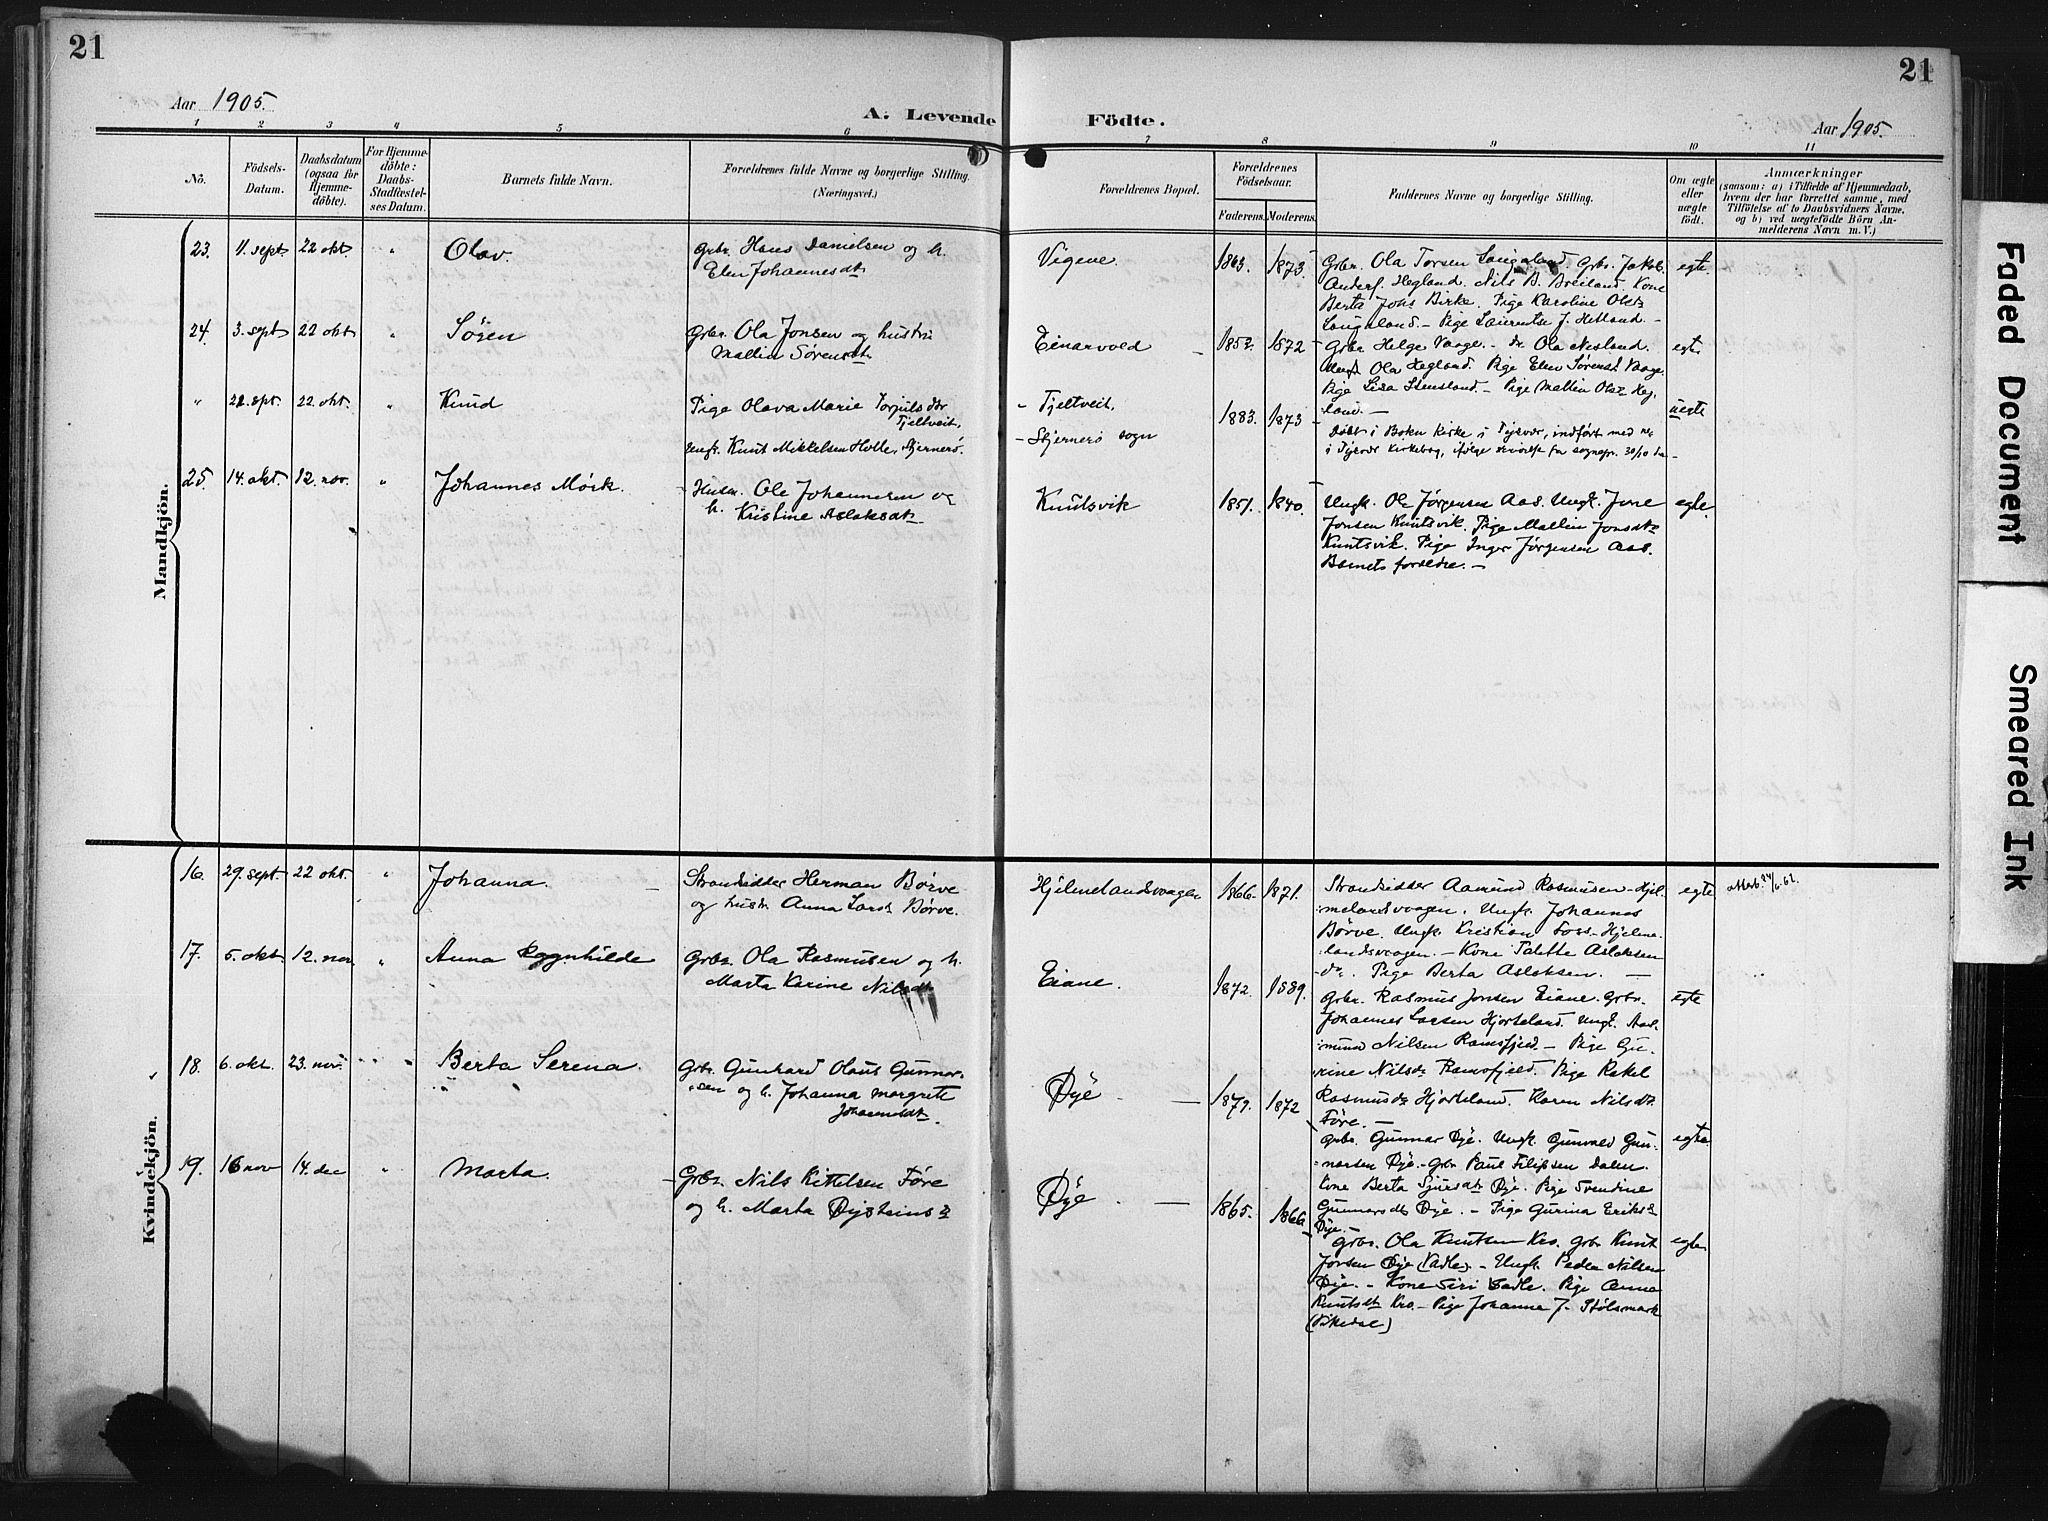 21
21
Aar 1905.
A. Levende Födte.
Aar 1905.
1 2 3 4 5 6 7 8 9 10 11
No.
Födsels-Datum.
Daabsdatum (ogsaa for Hjemmedöbte).
For Hjemmedöbte: Daabs-Stadfæstelses Datum.
Barnets fulde Navn.
Forældrenes fulde Navne og borgerlige Stilling.
(Næringsvei.)
Forældrenes Bopæl.
Forældrenes Födselsaar.
Faderens. Moderens.
Faddernes Navne og borgerlige Stilling.
Om ægte eller uægte födt.
Anmærkninger
(saasom: a) i Tilfælde af Hjemmedaab,
hvem der har forrettet samme, med
Tilföielse af to Daabsvidners Navne.
og b) ved uægtefödte Börn An-
melderens Navn m. V.)
Mandkjön.
23. 11. sept 22 okt " Olav. Grbr. Hans Danielsen og h.
Elen Johannesdt
Vigene 1863. 1873.
Grbr. Ola Torsen Langaland. Grbr. Jakob
Anders. Hegland. Nils B. Breiland. Kone
Berta Johs Birke. Pige Karoline Olsdr
Langaland. – Pige Laurentse J. Hetland. –
egte
24. 3. sept 22 okt " Sören Grbr. Ola Jonsen og hustru
Mallin Sørensdt
Einarvold 1852. 1872
Grbr Helge Vaage. – Ola Nesland.
Ungk Ola Hegland. Pige Elen Sørensd Vaage.
Pige Lisa Stensland. – Pige Mallin Olsdr Heg
land. –
egte
" 22. spt. 22. okt. " Knud Pige Olava Marie Torjuls dtr
Tjeltveit,
Ungk. Knut Mikkelsen Holle, Stjernerö.
– Tjeltveit,
– Stjernerö sogn 1883. 1873
Døbt i Bokn Kirke i Tysvær, indført med no
i Tysvær Kirkebog, ifølge skrivelse fra sognepr. 30/10
uegte
25. 14. okt. 12. nov. " Johannes Mörk. Husm. Ole Johannesen og
h. Kristine Aslaksdt
Knutsvik 1851. 1840.
Ungk. Ole Jørgensen Aas. Ungk. Jone
Jonsen Knutsvik. Pige Mallin Jonsdtr
Knutsvik. Pige Inger Jørgensen Aas.
Barnets forældre. –
egte.
Kvindekjön.
16. 29. sept. 22 okt. " Johanna. Strandsidder Herman Börve
og hustr. Anna Larsdt Börve.
Hjelmelandsvaagen 1866. 1871.
Strandsidder Aamund Rasmusen Hjel-
melandsvaagen. Ungk. Johannes
Börve. Ungk. Kristian Foss Hjelme-
landsvaagen. – Kone Talette Aslaksen
do. Pige Berta Aslaksen. –
egte
attest 24/6. 62.
17. 5. okt. 12. nov " Anna Ragnhilde Grbr. Ola Rasmusen og h.
Marta Karine Nilsdt
Eiane. 1872. 1889.
Grbr. Rasmus Jonsen Eiane. Grbr.
Johannes Larsen Hjorteland. Ungk. Aas-
mund Nilsen Ramsfjeld – Pige Gu-
rine Nilsdr Ramsfjeld. Pige Rakel
Rasmusdr Hjorteland. Karen Nilsdr.
Føre. –
egte
18. 6. okt. 23. nov. " Berta Serena. Grbr. Gunhard Olaus Gunnar-
sen og h. Johanna Margrete
Johannesdt.
Øye – 1879. 1872
Grbr. Gunnar Øye. Ungk. Gunvald Gun-
narsen Øye. – Grbr Paul Filipsen Dalen.
Kone Berta Sjursdt Øye. Pige Svendine
Gunnarsdt Øye. – Pige Gurina Eriksdr
Øye. –
egte
19. 16 nov 14. dec " Marta. Grbr. Nils Kittelsen Føre
og h. Marta Øysteinsdr
Øye – 1865. 1866
Grbr. Ola Knutsen Kro. Grbr Knut
Jonsen Øye (Vadle). – Ungk. Peder Nilsen
Øye. – Kone Siri Vadle. Pige Anna
Knutsdt Kro. – Pige Johanna J. Stølsmark
(Vikedal)
egte
Faded Document
Smeared Ink